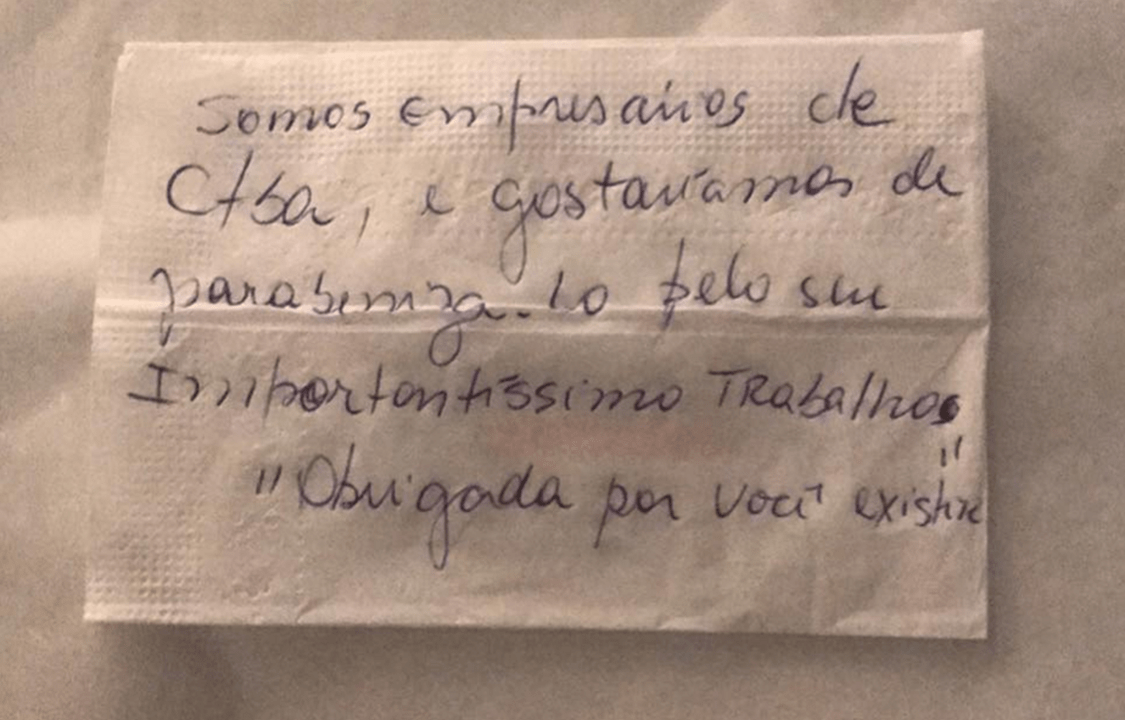 Somos empresários de
Ctba, e gostaríamos de
parabeniza-lo pelo seu
Importantíssimo TRabalho.
"Obrigada por você existir"